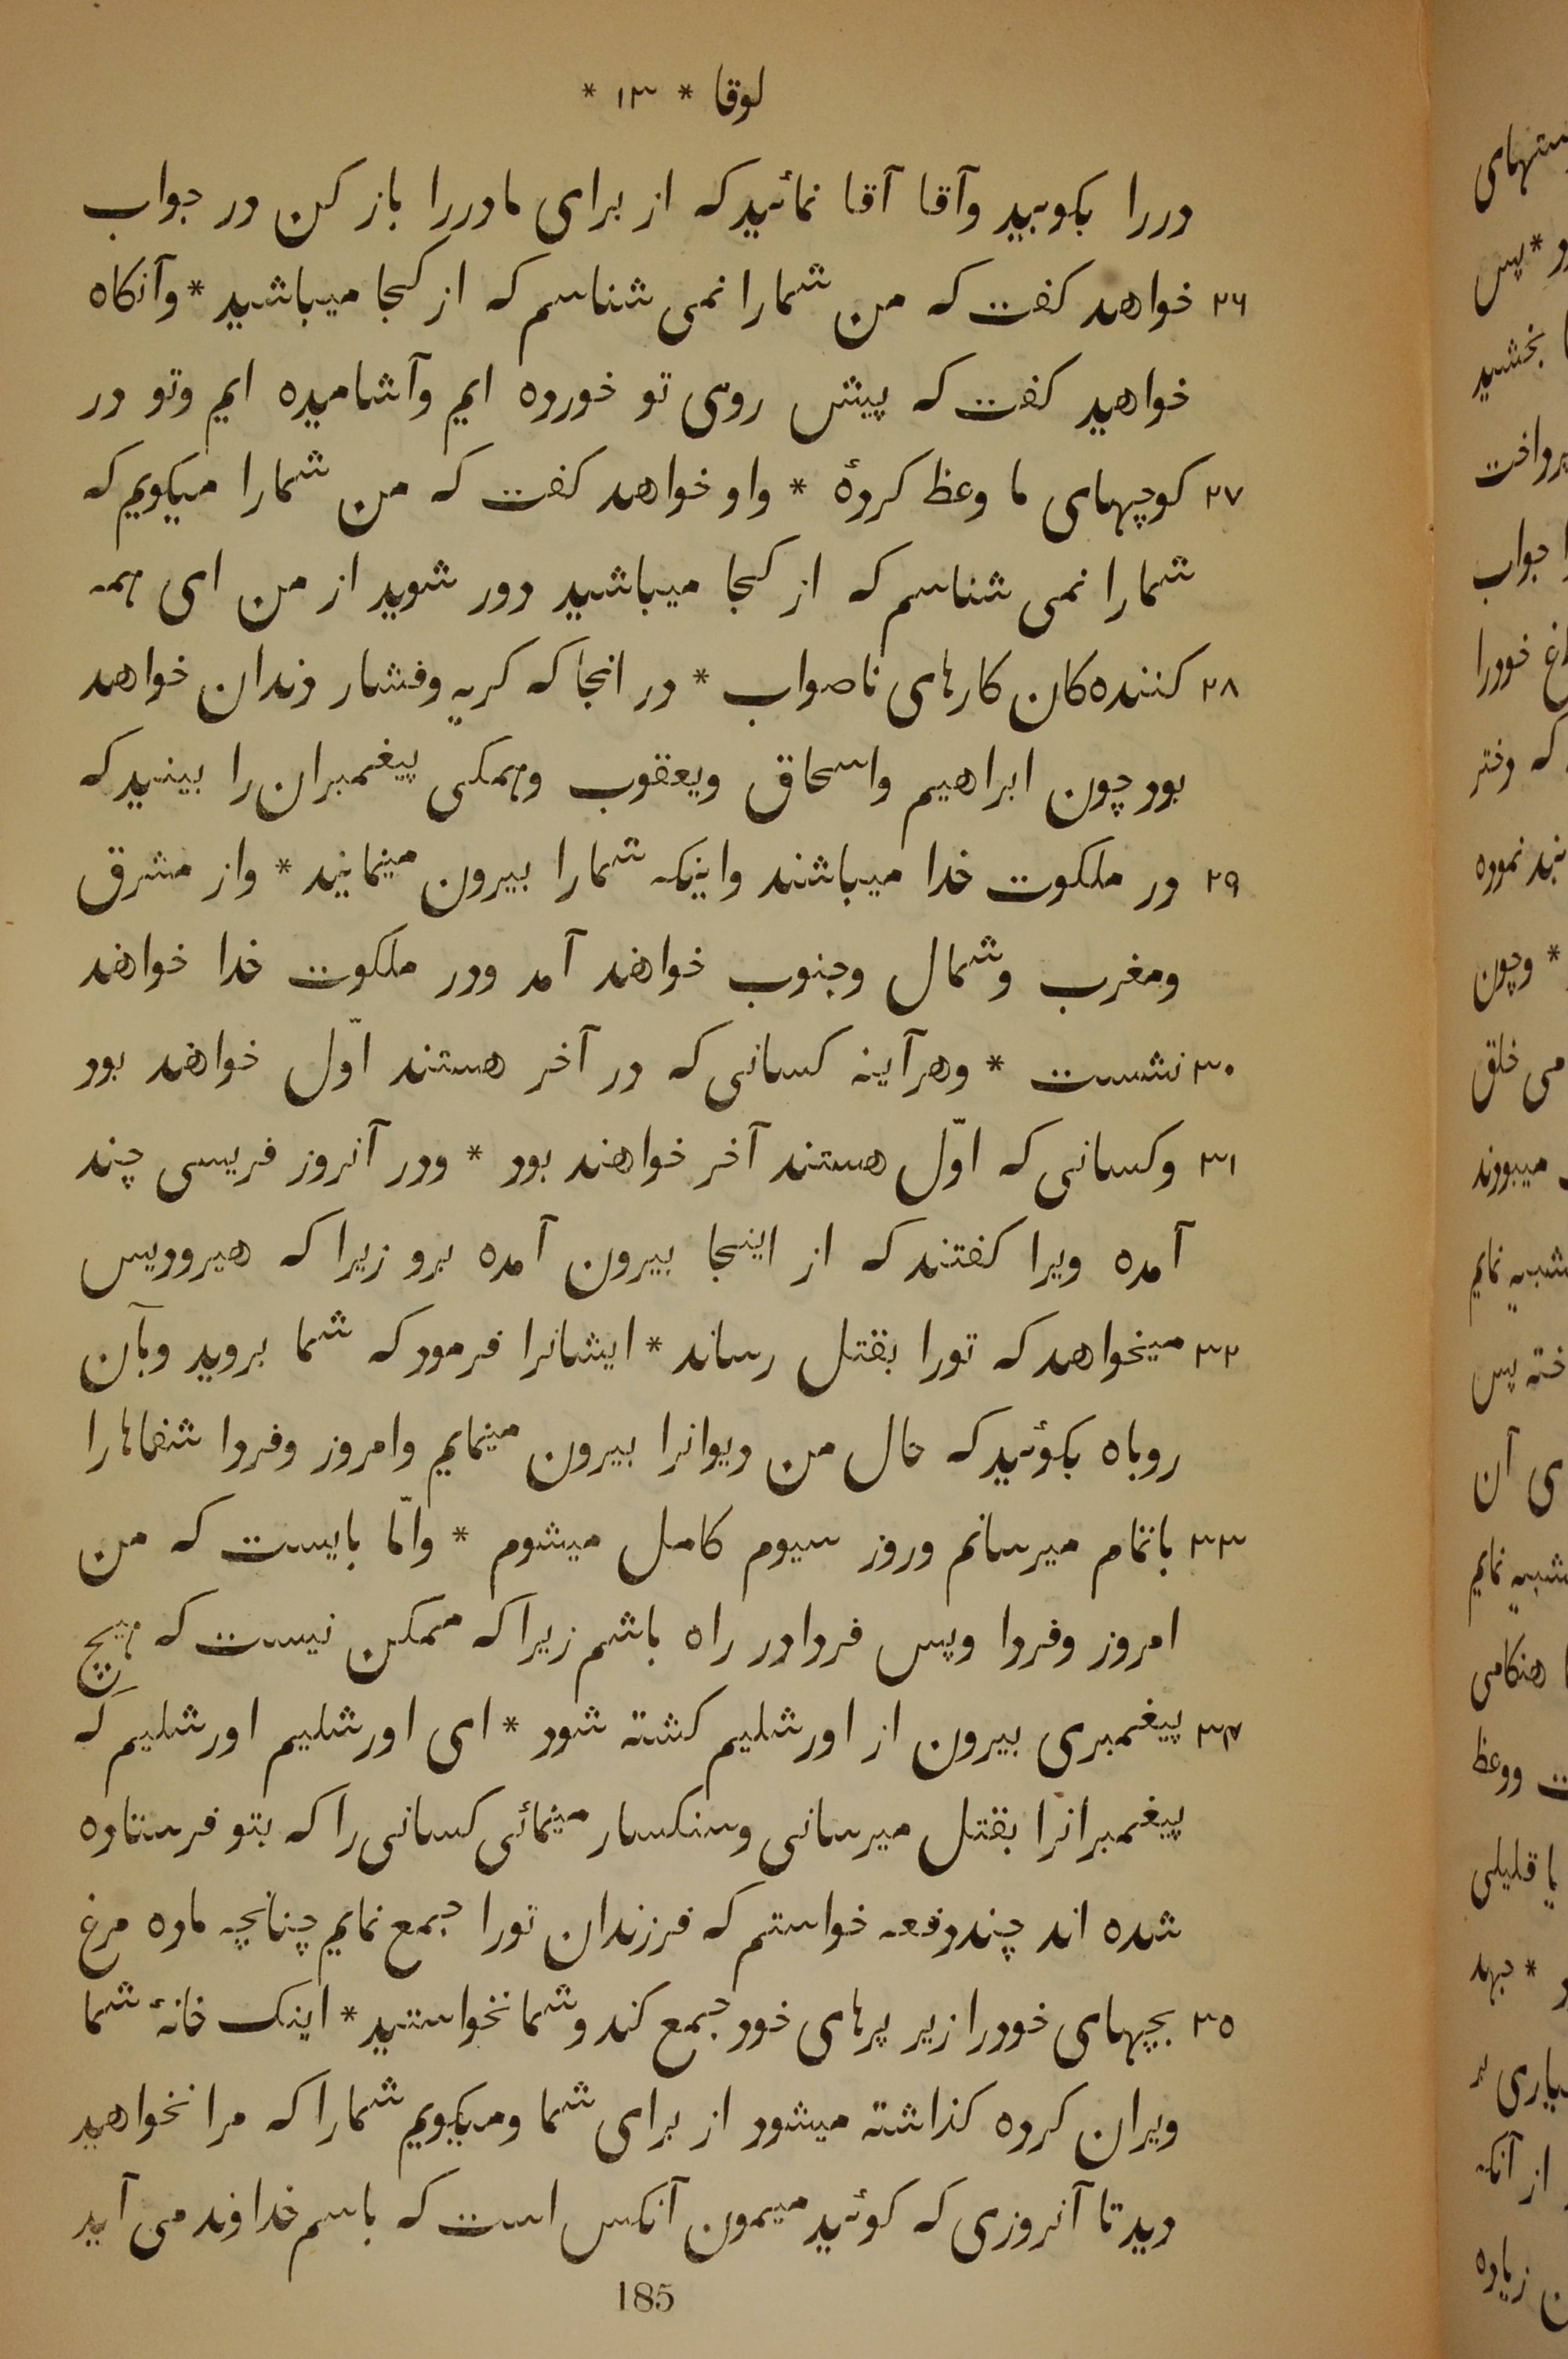 لوقا * ۱۳ *
دررا بکوبید وآقا آقا نمائید که از برای ما دررا باز کن در جواب
۲۶ خواهد کفت که من شمارا نمی شناسم که از کجا میباشید * وآنکاه
خواهید کفت که پیش روی تو خورده ایم وآشامیده ایم وتو در
۲۷ کوچهای ما وعظ کردهٔ * واو خواهد کفت که من شمارا میکویم که
شمارا نمی شناسم که از کجا میباشید دور شوید از من ای همه
۲۸ کننده کان کارهای ناصواب * در انجا که کریه وفشار دندان خواهد
بود چون ابراهیم واسحاق ویعقوب وهمکی پیغمبران را بینید که
۲۹ در ملکوت خدا میباشند واینکه شمارا بیرون مینمایند * واز مشرق
ومغرب وشمال وجنوب خواهند آمد ودر ملکوت خدا خواهند
۳۰ نشست * وهرآینه کسانی که در آخر هستند اوّل خواهند بود
۳۱ وکسانی که اوّل هستند آخر خواهند بود * ودر آنروز فریسی چند
آمده ویرا کفتند که از اینجا بیرون آمده برو زیرا که هیرودیس
۳۲ میخواهد که تورا بقتل رساند * ایشانرا فرمود که شما بروید وبآن
روباه بکوئید که حال من دیوانرا بیرون مینمایم وامروز وفردا شفاهارا
۳۳ باتمام میرسانم وروز سیوم کامل میشوم * وامّا بایست که من
امروز وفردا وپس فردا در راه باشم زیرا که ممکن نیست که هیچ
۳۴ پیغمبری بیرون از اورشلیم کشته شود * ای اورشلیم اورشلیم که
پیغمبرانرا بقتل میرسانی وسنکسار مینمائی کسانی را که بتو فرستاده
شده اند چند دفعه خواستم که فرزندان تورا جمع نمایم چنانچه ماده مرغ
۳۵ بچهای خودرا زیر پرهای خود جمع کند وشما نخواستید * اینک خانهٔ شما
ویران کرده کذاشته میشود از برای شما ومیکویم شمارا که مرا نخواهید
دید تا آنروزی که کوئید میمون آنکس است که باسم خداوند می آید
185